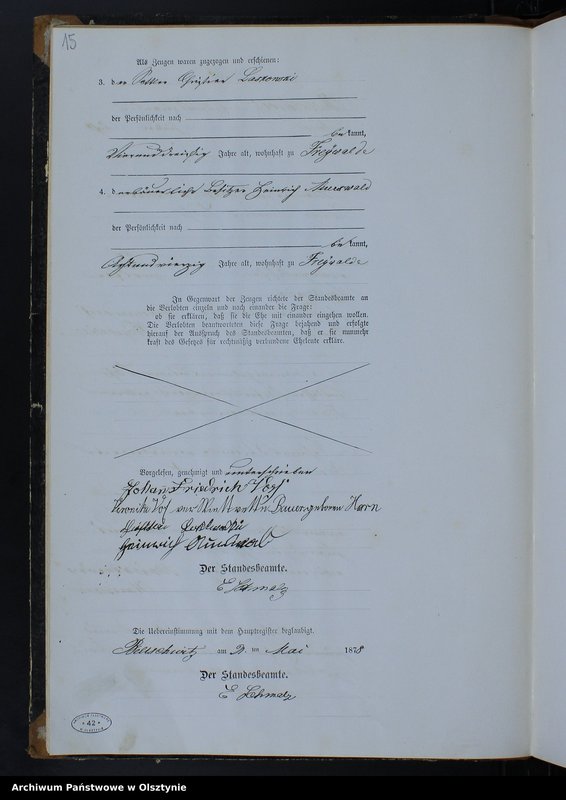 15
Als Zeugen waren zugezogen und erschienen:
3. der
der Persönlichkeit nach
bekannt,
Vierunddreißig Jahre alt, wohnhaft zu Freywalde
4. der bäuerliche Besitzer Heinrich Auerswald
der Persönlichkeit nach
bekannt,
Achtundvierzig Jahre alt, wohnhaft zu Freywalde
In Gegenwart der Zeugen richtete der Standesbeamte an
die Verlobten einzeln und nach einander die Frage:
ob sie erklären, daß sie die Ehe mit einander eingehen wollen.
Die Verlobten beantworteten diese Frage bejahend und erfolgte
hierauf der Ausspruch des Standesbeamten, daß er sie nunmehr
kraft des Gesetzes für rechtmäßig verbundene Eheleute erkläre.
Vorgelesen, genehmigt und unterschrieben
Johan Friedrich
geboren Horn
Heinrich
Der Standesbeamte.
E Schmalz
Die Uebereinstimmung mit dem Hauptregister beglaubigt.
am 2 ten Mai 1878
Der Standesbeamte.
E Schmalz
42
Archiwum Państwowe w Olsztynie